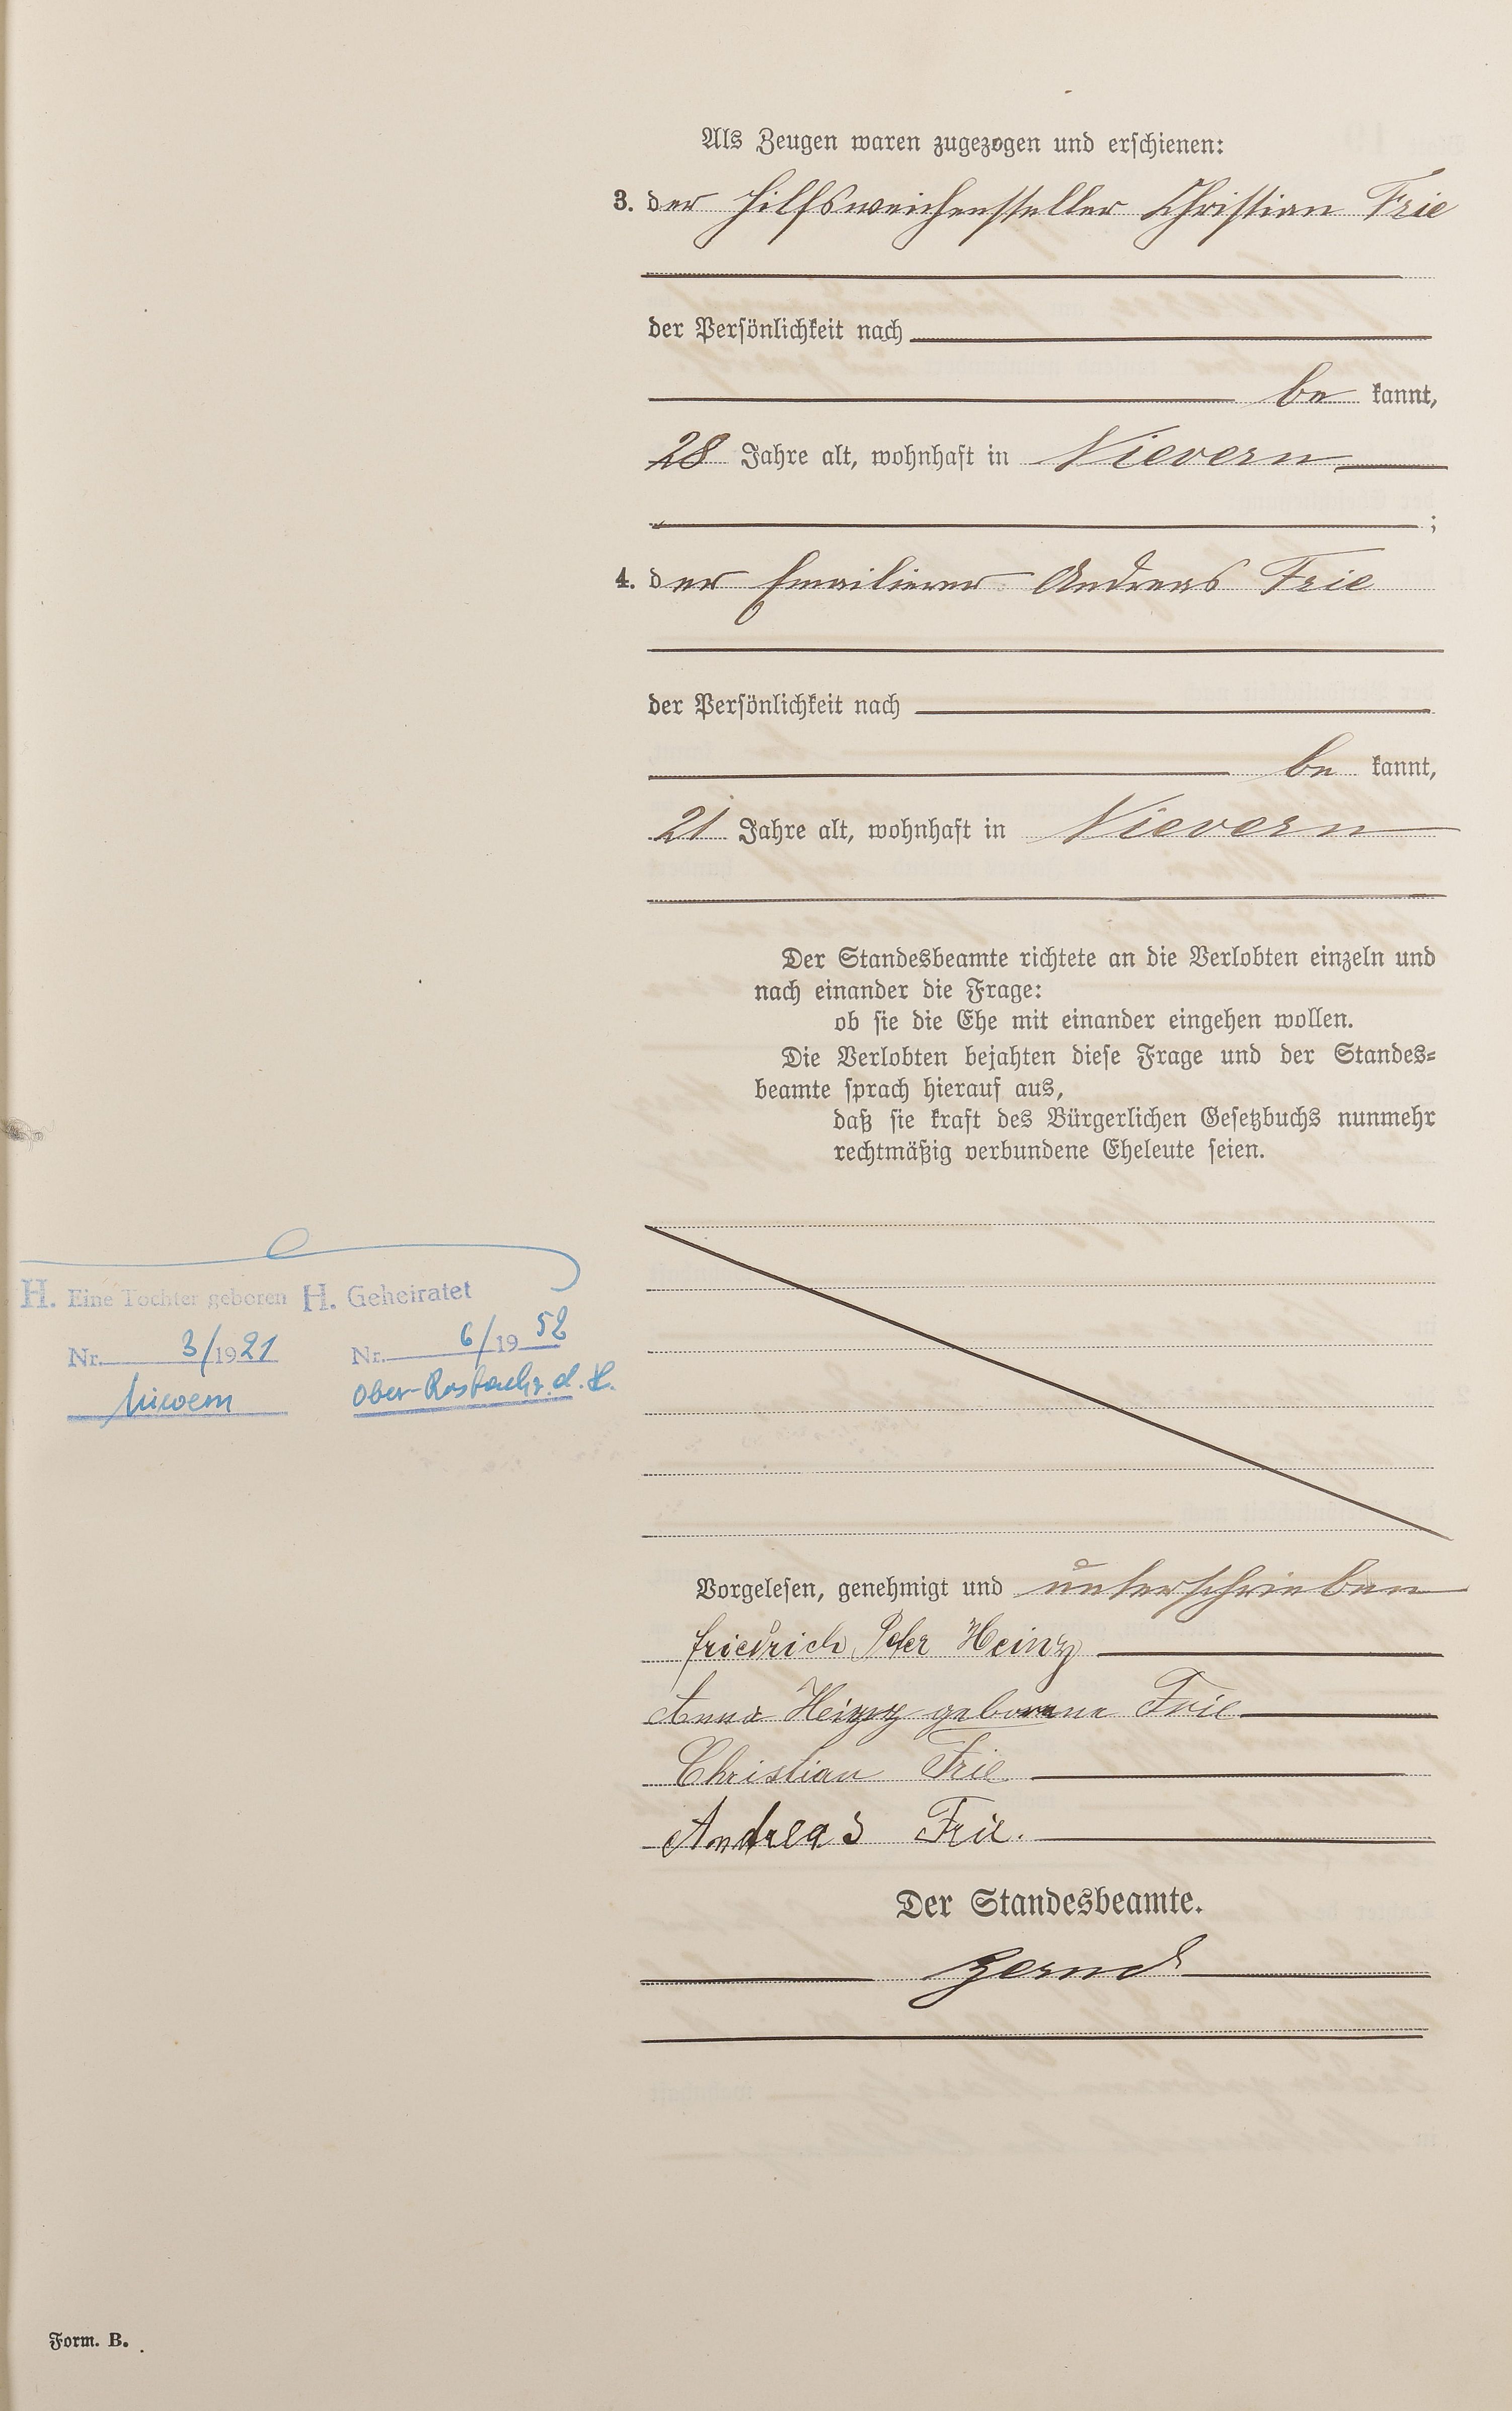 Als Zeugen waren zugezogen und erschienen:
3. der Hilfsweichensteller Christian Frie
der Persönlichkeit nach
be kannt,
28 Jahre alt, wohnhaft in Nievern
;
4. der Emailierer Andreas Frie
der Persönlichkeit nach
be kannt,
21 Jahre alt, wohnhaft in Nievern
Der Standesbeamte richtete an die Verlobten einzeln und
nach einander die Frage:
ob sie die Ehe mit einander eingehen wollen.
Die Verlobten bejahten diese Frage und der Standes-
beamte sprach hierauf aus,
daß sie kraft des Bürgerlichen Gesetzbuchs nunmehr
rechtmäßig verbundene Eheleute seien.
H. Eine Tochter geboren
Nr. 3/1921
Nievern
H. Geheiratet
Nr. 6/1952
Ober-Rosbach v. d. H.
Vorgelesen, genehmigt und unterschrieben
Friedrich Peter Heinz
Anna Heinz geborene Frie
Christian Frie
Andreas Frie.
Der Standesbeamte.
Form. B.